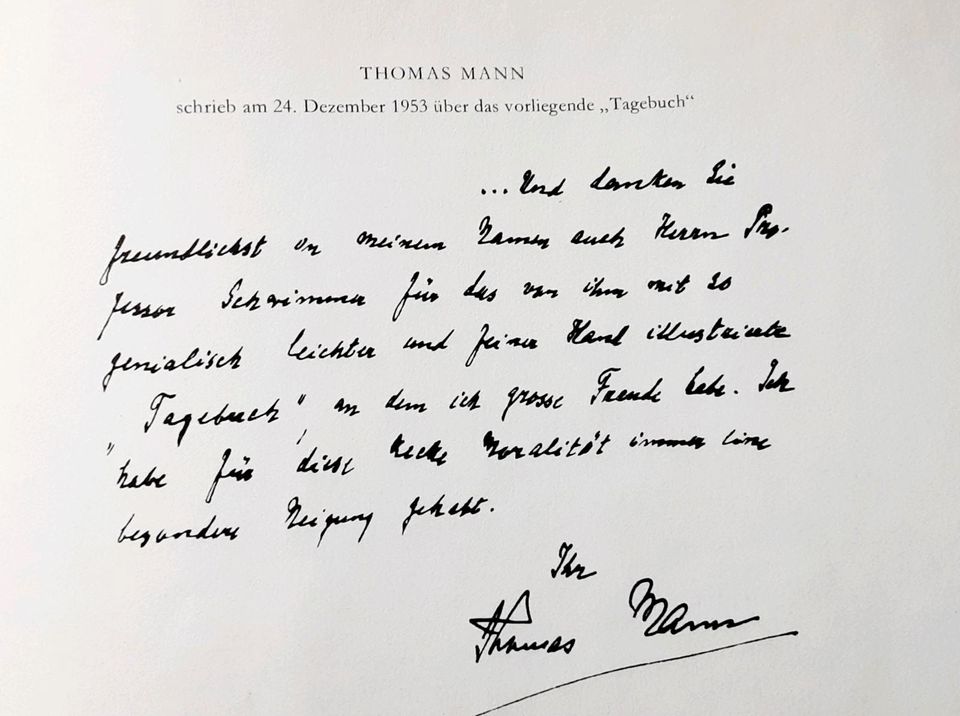 THOMAS MANN
schrieb am 24. Dezember 1953 über das vorliegende „Tagebuch“
...Und danken Sie
freundlichst in meinem Namen auch Herrn Pro-
fessor Schwimmer für das von ihm mit so
genialisch leichter und feiner Hand illustrierte
„Tagebuch“, an dem ich grosse Freude habe. Ich
habe für diese kecke Moralität immer eine
besondere Neigung gehabt.
Ihr
Thomas Mann